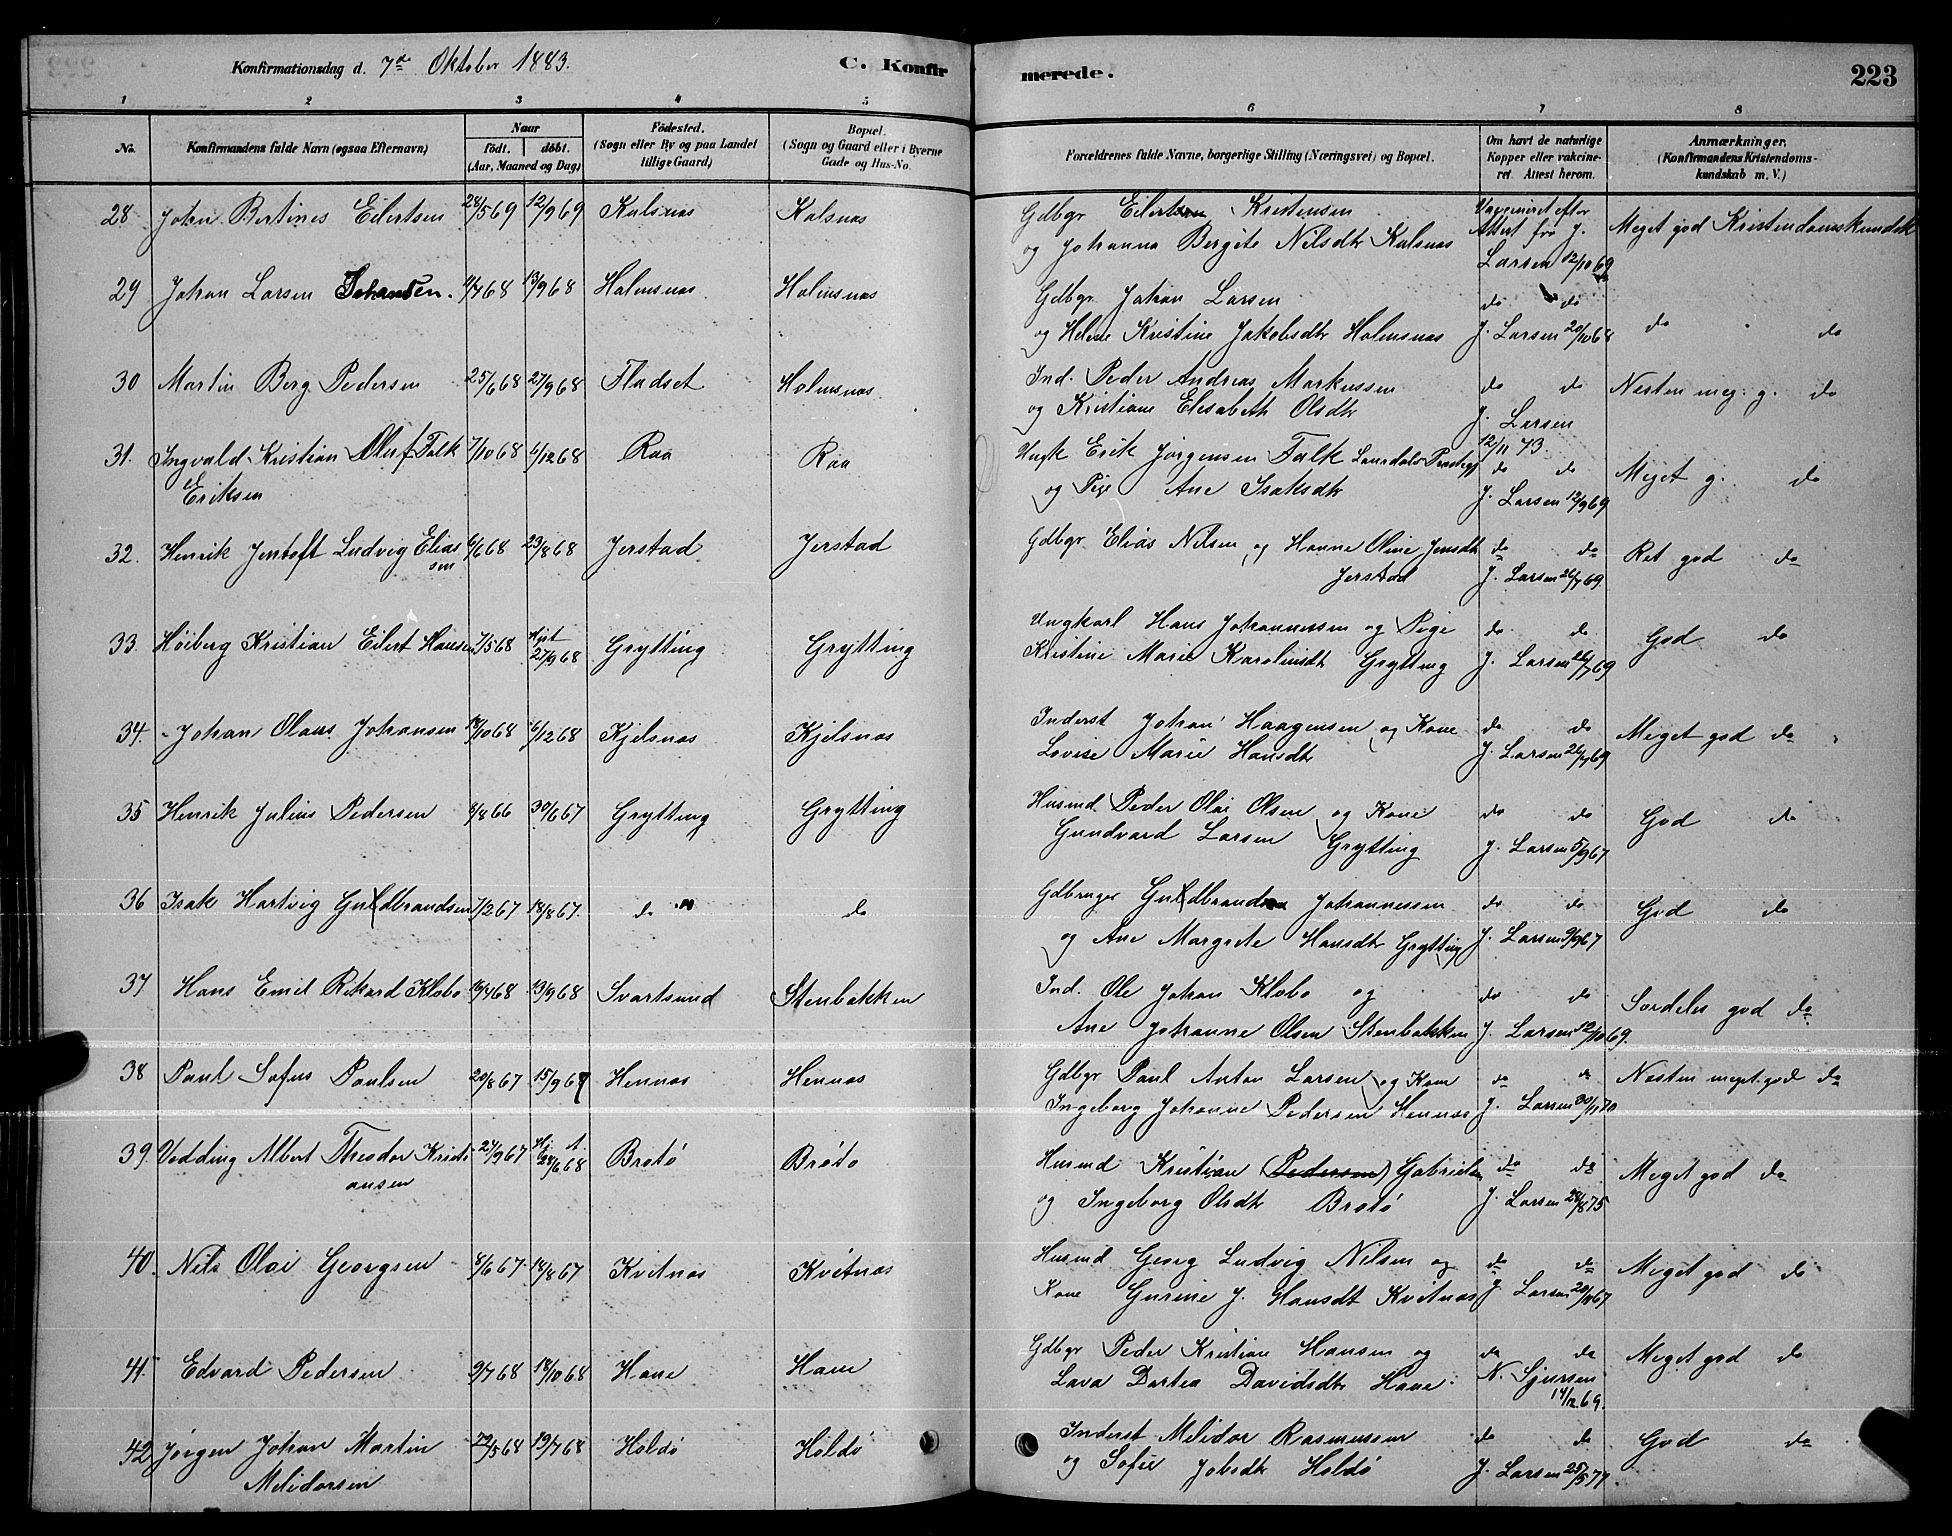 Konfirmationsdag d. 7de Oktober 1883.
C. Konfirmerede.
223
1 2 3 4 5 6 7 8
No.
Konfirmandens fulde Navn (ogsaa Efternavn)
Naar
født. døbt.
(Aar, Maaned og Dag)
Fødested.
(Sogn eller By og paa Landet
tillige Gaard)
Bopæl.
(Sogn og Gaard eller i Byerne
Gade og Hus-No.
Forældrenes fulde Navne, borgerlige Stilling (Næringsvei) og Bopæl.
Om havt de naturlige
Kopper eller vakcine-
ret. Attest herom.
Anmærkninger.
(Konfirmandens Kristendoms-
kundskab m. V.)
28 Johan Bertines Eilertsen 28/5 69 12/9 69 Kalsnæs Kalsnæs Gdbgr Eilert Kristensen Vaccineret efter
og Johanna Bergite Nilsdtr Kalsnæs Attest fra J. Meget god Kristendomskundsk
Larsen 12/10 69
29 Johan Larsen Johansen. 4/7 68 13/9 68 Holmsnæs Holmsnæs Gdbgr Johan Larsen do do
og Helene Kristine Jakobsdtr Holmsnæs J. Larsen 20/10 68 do do
30 Martin Berg Pedersen 25/6 68 27/9 68 Fladset Holmsnæs Ind. Peder Andreas Markussen do do Næsten meg. g. do
og Kristiane Elisabeth Olsdtr J. Larsen
12/11 73.
31. Ingvald Kristian Oluf Falk 7/10 68 6/12 68 Raa Raa Ungk Erik Jørgensen Falk do do
el Eriksen og Pige Ane Isaksdtr J. Larsen 12/9 69 Meget g. do
32. Henrik Jentoft Ludvig Elias 6/6 68 23/8 68 Jerstad Jerstad Gdbgr Elias Nilsen og Hanne Oline Jensdtr do do Ret god do
sen Jerstad J. Larsen 26/7 69.
33. Høiberg Kristian Eilert Hansen 7/5 68 Hjst 27/9 68 Grytting Grytting Ungkarl Hans Johannessen og Pige do do God do
Kristine Marie Karolinsdtr Grytting J. Larsen 26/7 69
34. Johan Olaus Johansen 18/10 68 6/12 68 Kjelsnæs Kjelsnæs Inderst Johan Haagensen og Kone do do Meget god do
Lovise Marie Hansdtr J. Larsen 26/7 69
35 Henrik Julius Pedersen 8/8 66 30/6 67 Grytting Grytting Husmd Peder Olai Olsen og Kone do do God do
Gundvard Larsen Grytting J. Larsen 5/9 67
36 Isak Hartvig Guldbrandsen 7/2 67 18/8 67. do do Gdbruger Guldbrand Johannessen do do God do
og Ane Margrete Hansdtr Grytting J. Larsen 9/9 67
37 Hans Emil Rikard Klæbo 19/4 68 13/9 68 Svartsund Stenbakken Ind. Ole Johan Klæbo og do do Særdeles god do
Ane Johanne Olsen Stenbakken J. Larsen 12/10 69.
38 Paul Sofus Paulsen 20/8 67 15/9 67 Hennæs Hennæs Gdbgr Paul Anton Larsen og Kone do do Næsten meget god do
Ingeborg Johanne Pedersen Hennæs J. Larsen 30/11 70
39. Vedding Albert Theodor Kristi 27/9 67 Hj. 28/6 68 Brotø Brotø Husmd Kristian (Pedersen) Gabrielsen do do Meget god do
ansen og Ingeborg Olsdtr Brotø J. Larsen 28/8 75
40. Nils Olai Georgsen 8/6 67 18/8 67 Kvitnæs Kvitnæs Husmd Georg Ludvig Nilsen og do do Meget god do
Kone Gurine J. Hansdt Kvitnæs J. Larsen 20/11 67
41. Edvard Pedersen 9/7 68 18/10 68 Hane Hane Gdbgr Peder Kristian Hansen og do do Meget god do
Lava Dortea Davidsdtr Hane. N. Sjursen
14/12 69.
42 Jørgen Johan Martin 22/5 68 19/7 68 Holdø Holdø Inderst Melidor Rasmussen do do God do
Melidorsen og Sofie Jobsdtr Holdø J. Larsen 25/5 77